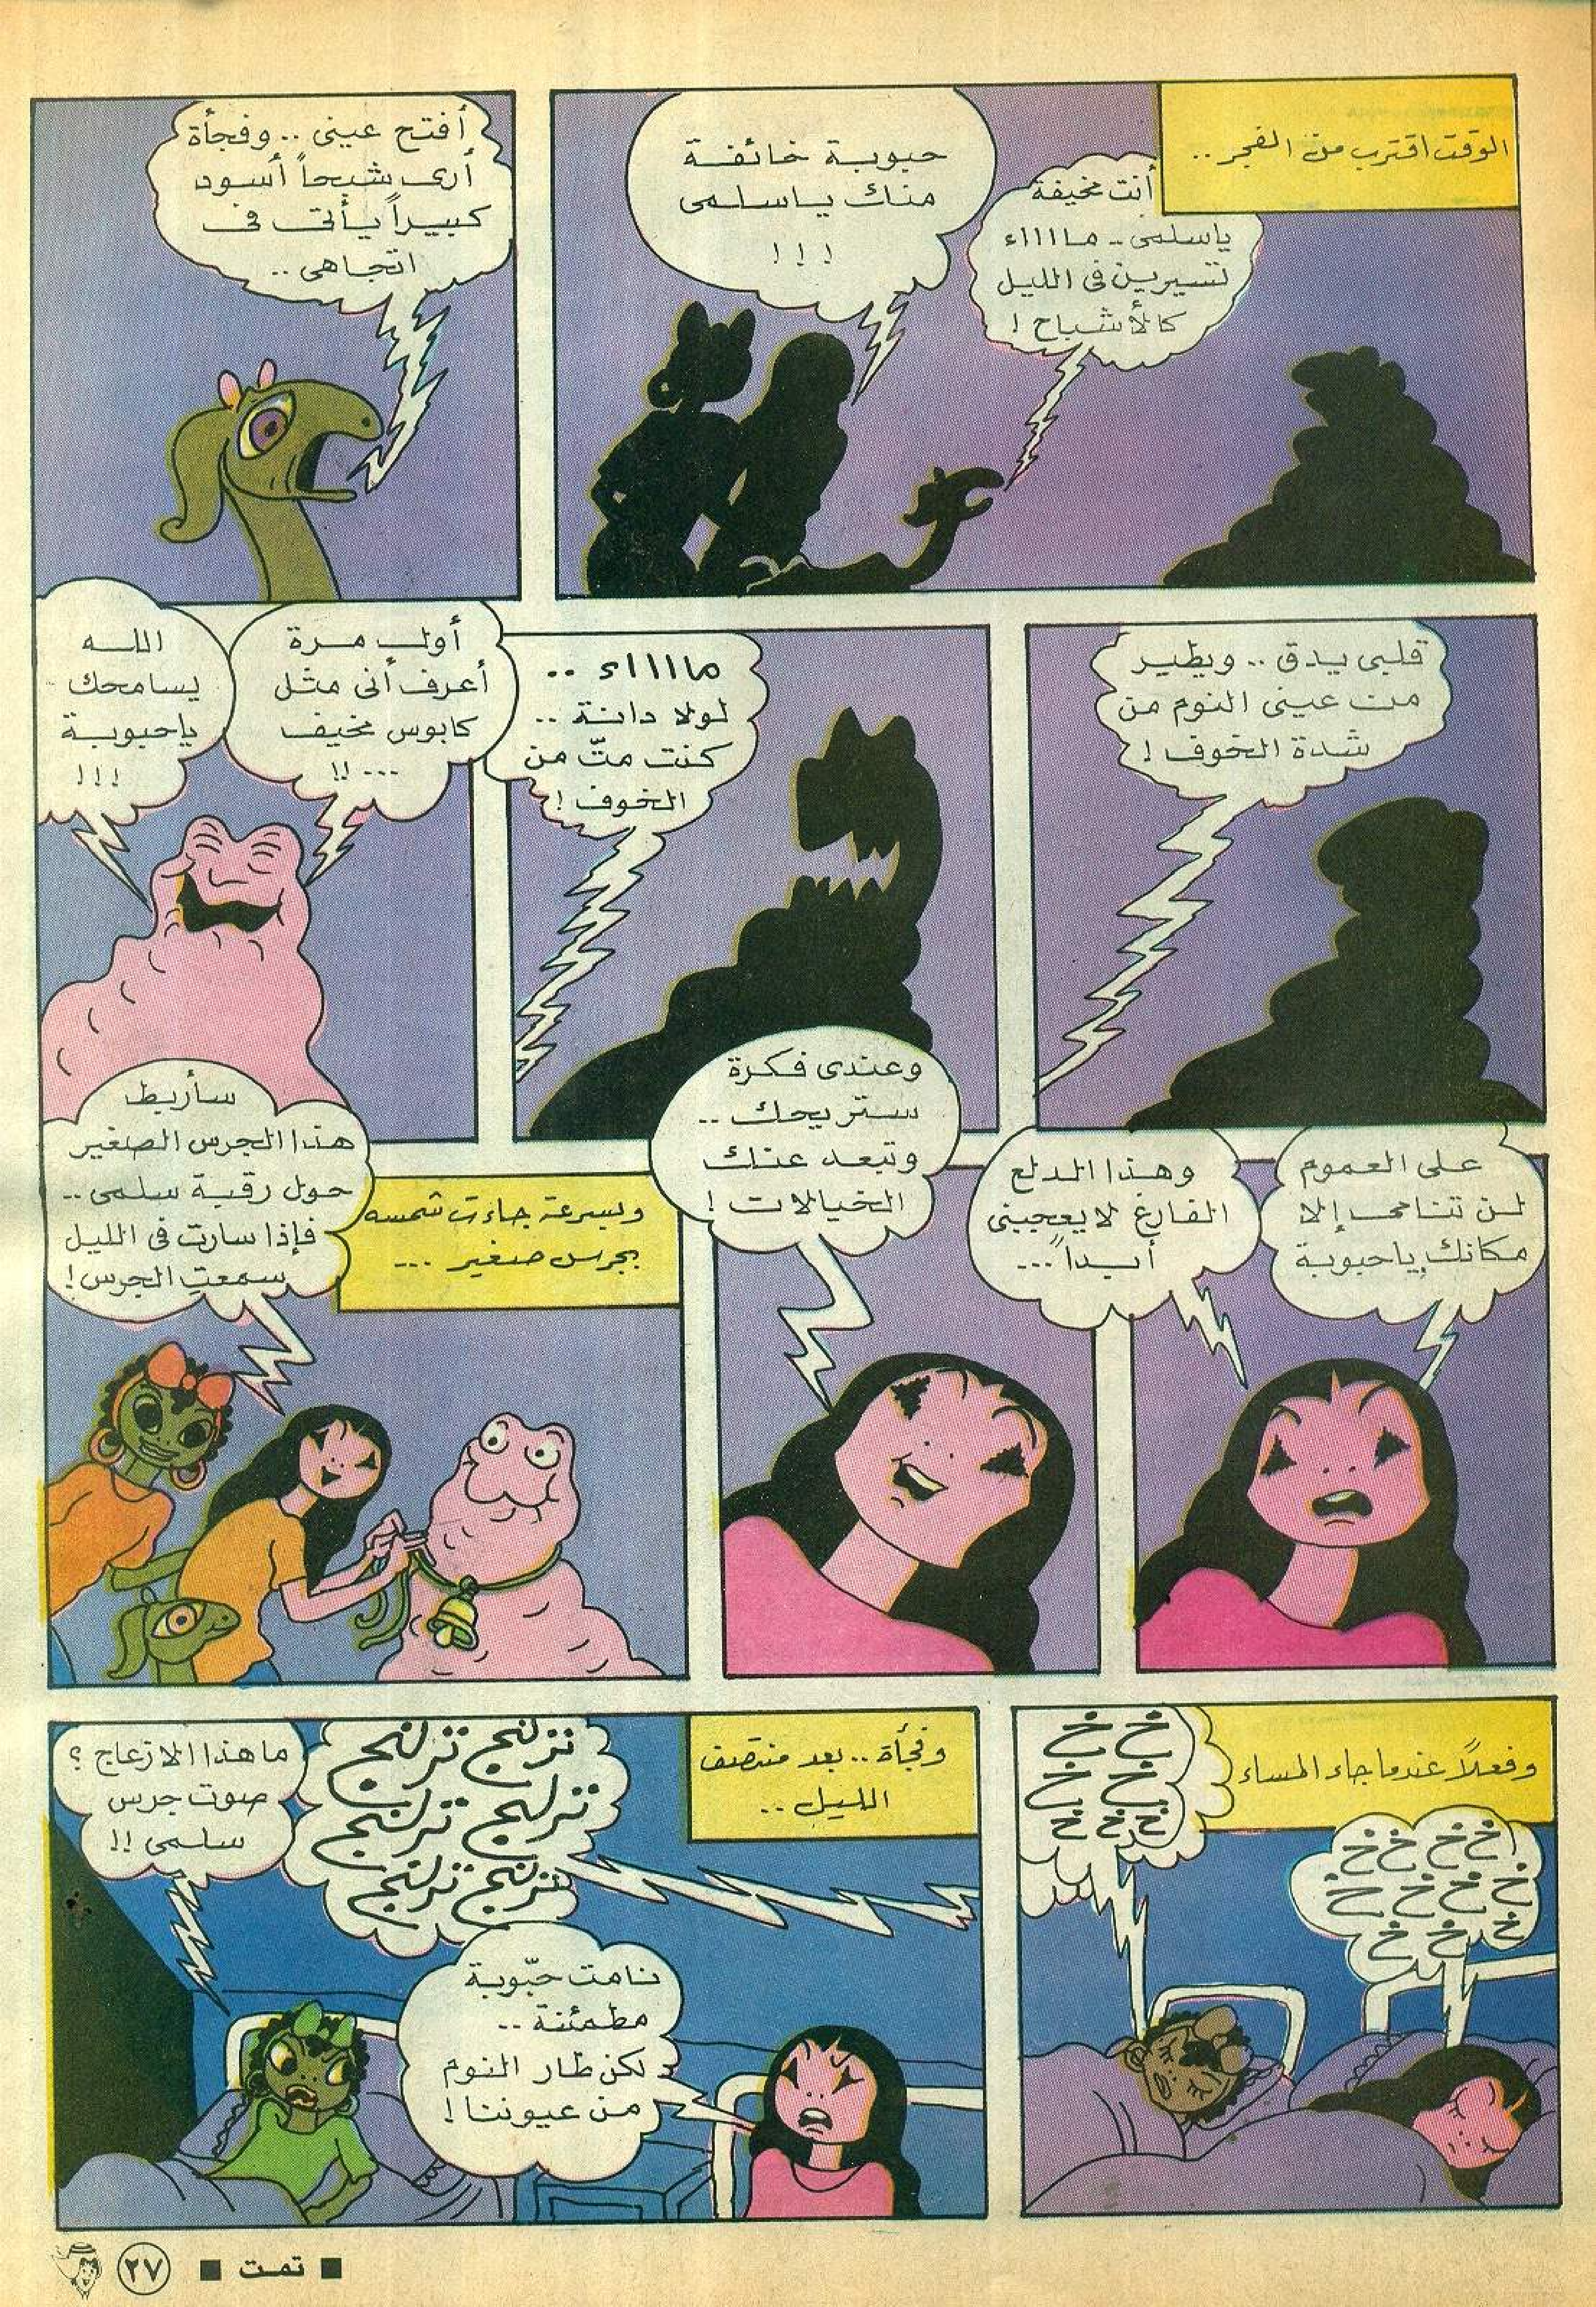 الوقت اقترب من الفجر ..
أنت مخيفة
ياسلمى .. ماااااء
تسيرين فى الليل
كالأشباح !
حبوبة خائفة
منك ياسلمى
! ! !
أفتح عينى .. وفجأة
أرى شبحاً أسود
كبيراً يأتى فى
اتجاهى ..
قلبى يدق .. ويطير
من عينى النوم من
شدة الخوف !
مااااء ..
لولا دانة ..
كنت متّ من
الخوف !
أول مرة
أعرف أنى مثل
كابوس مخيف
... !!
الله
يسامحك
ياحبوبة
! ! !
على العموم
لن تنامى إلا
مكانك ياحبوبة
وهذا الدلع
الفارغ لا يعجبنى
أبداً ...
وعندى فكرة
ستريحك ..
وتبعد عنك
الخيالات !
وبسرعة جاءت شمسه
بجرس صغير ...
سأربط
هذا الجرس الصغير
حول رقبة سلمى ..
فإذا سارت فى الليل
سمعتِ الجرس !
وفعلاً عندما جاء المساء
خ خ خ خ
خ خ خ خ
خ خ خ
خ خ
خ خ
خ خ خ
وفجأة .. بعد منتصف
الليل ..
ترلنج ترلنج
ترلنج ترلنج
ترلنج ترلنج
ما هذا الازعاج ؟
صوت جرس
سلمى !!
نامت حبّوبة
مطمئنة ..
لكن طار النوم
من عيوننا !
■ تمت ■ ٢٧